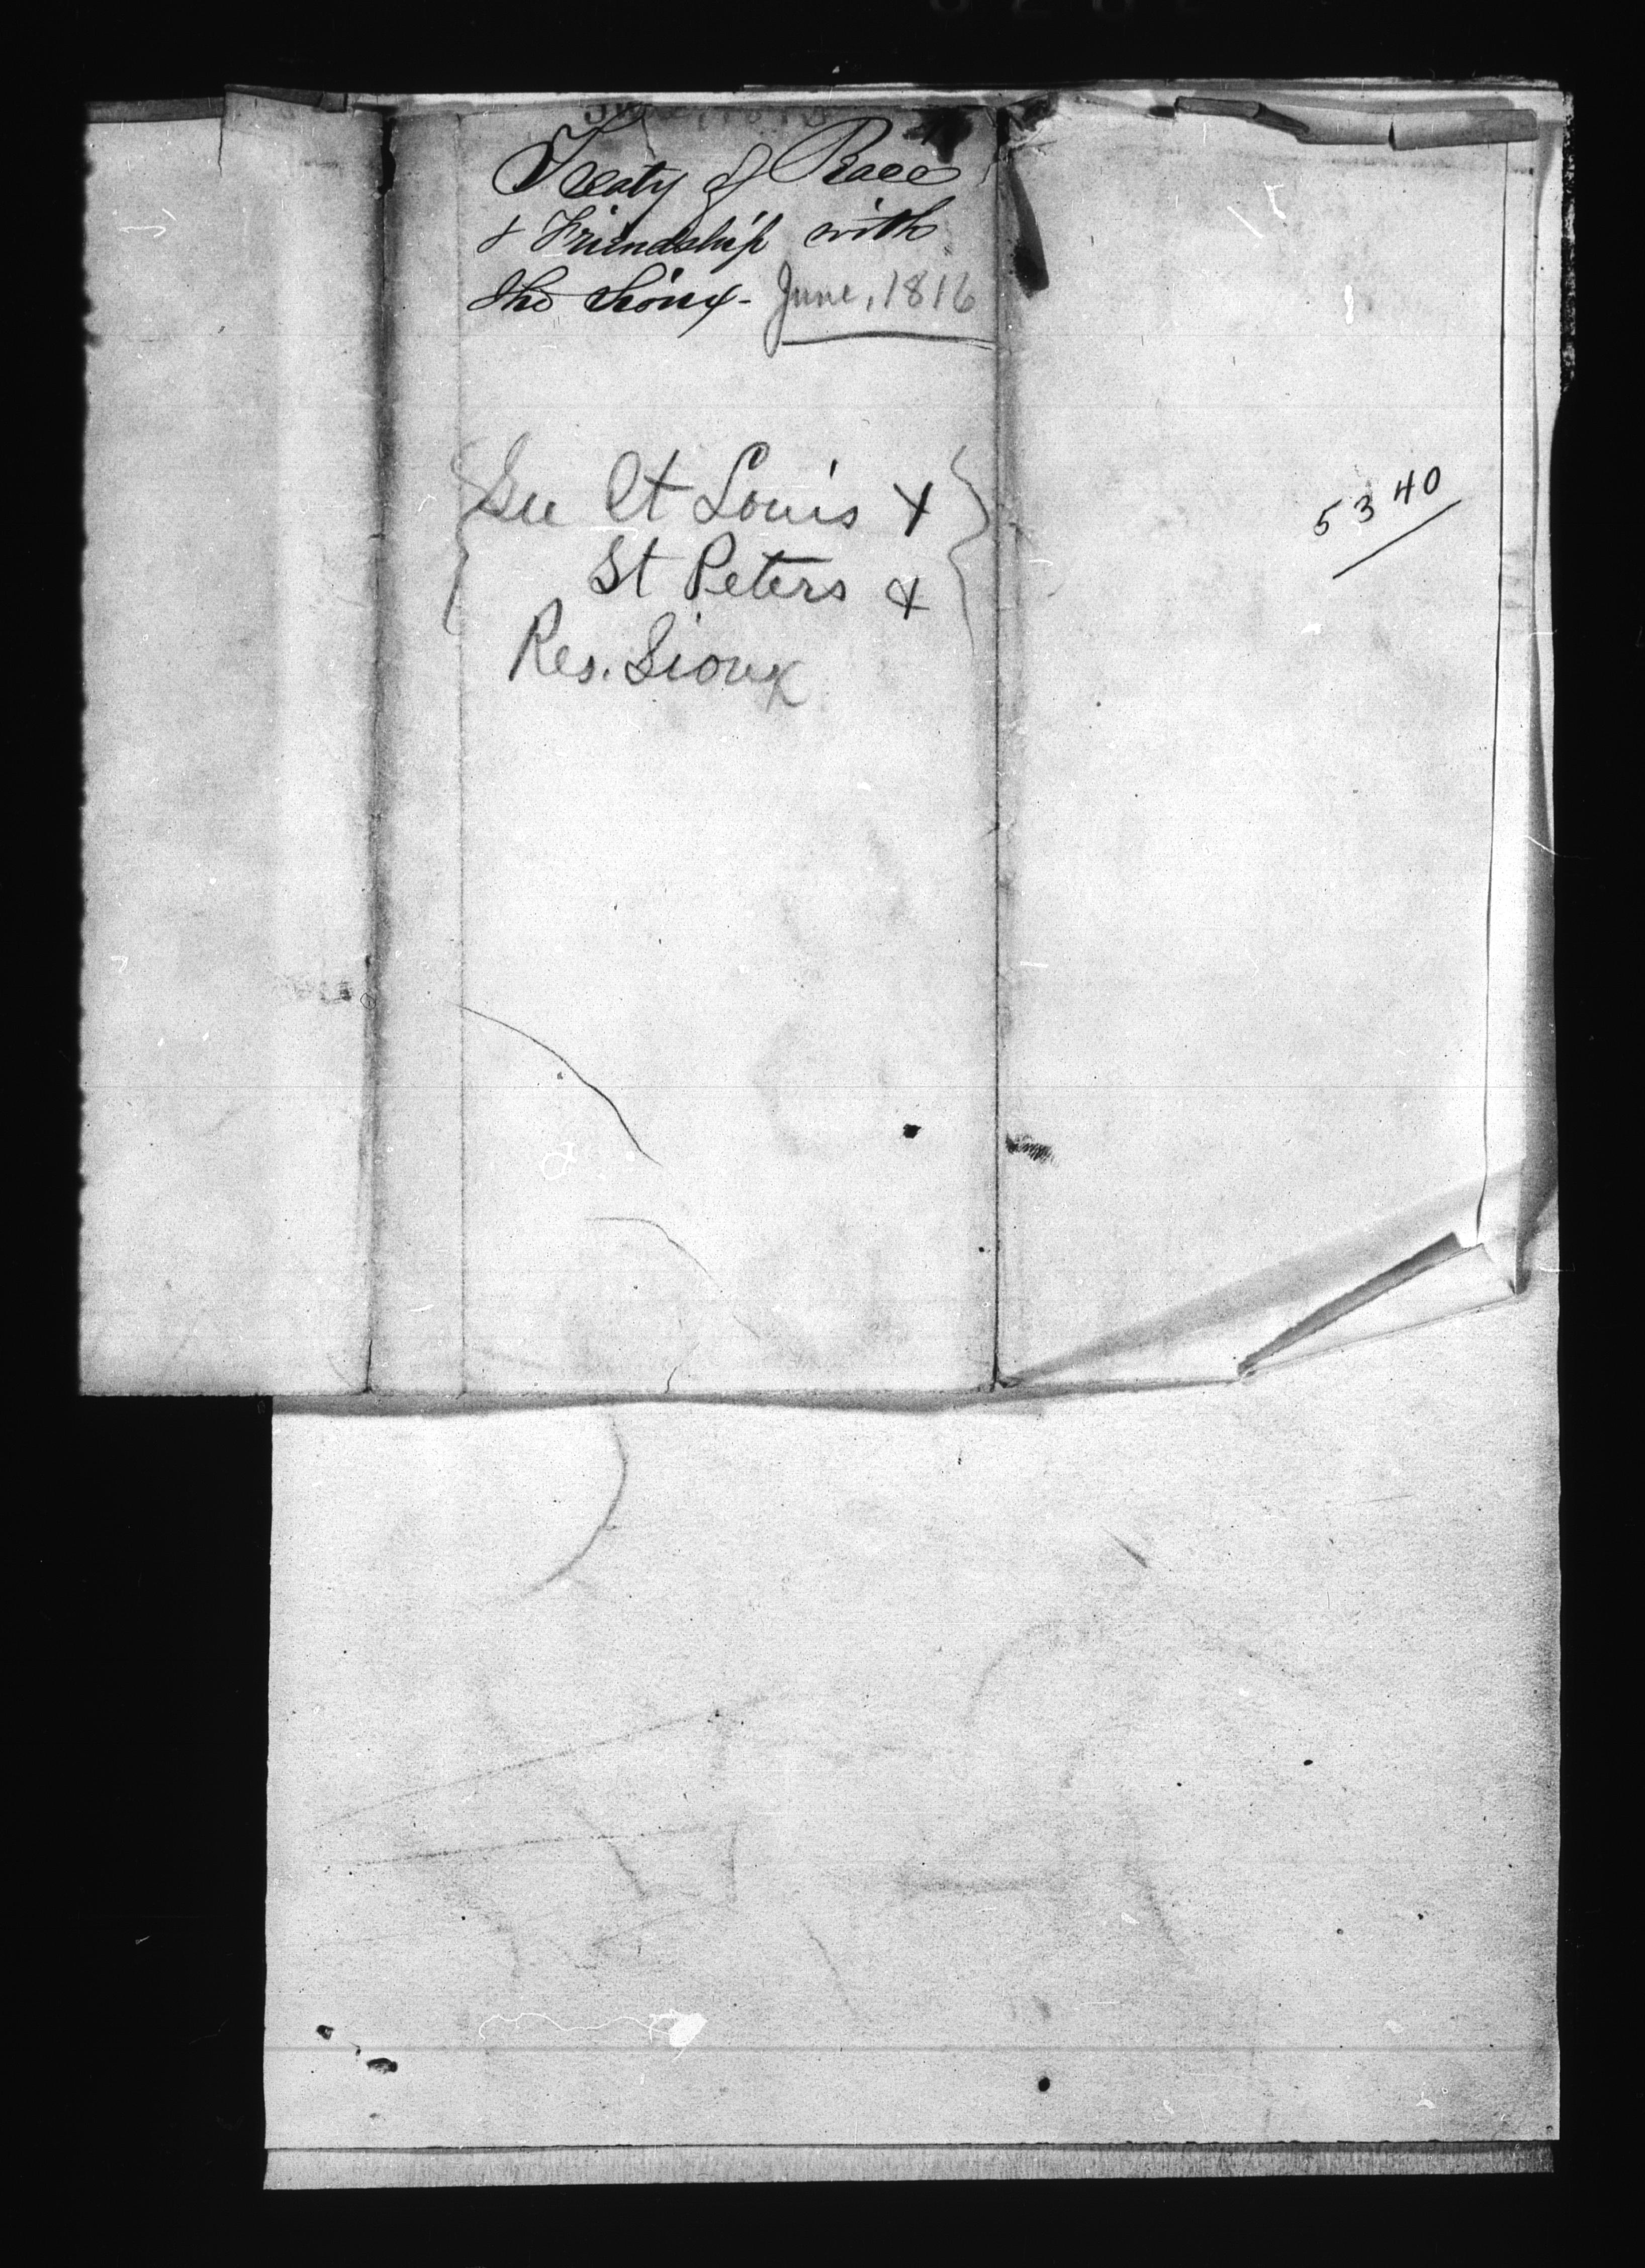 Treaty of Peace
& Friendship with
the Sioux - June, 1816
See St Louis &
St Peters &
Res. Sioux
5340